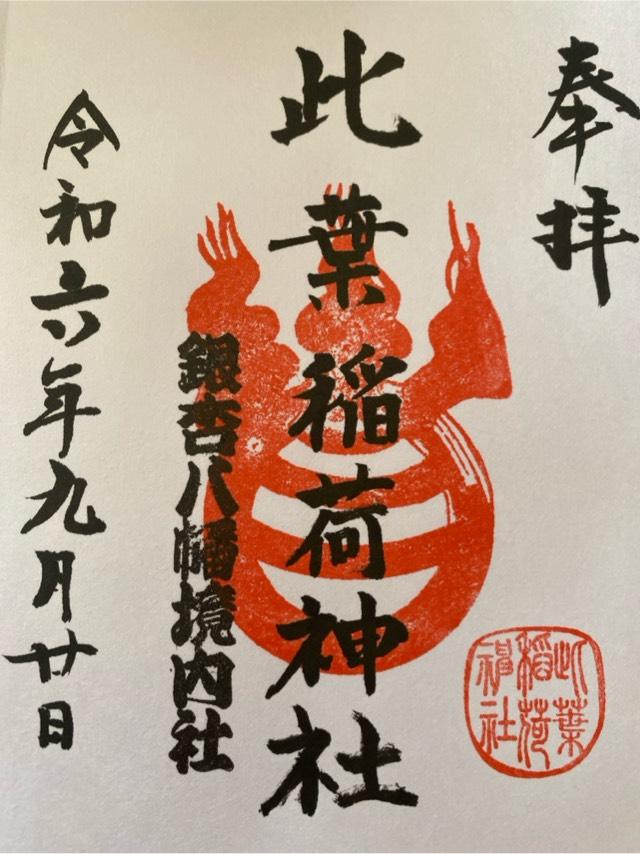 奉拝
此葉稲荷神社
銀杏八幡境内社
令和六年九月廿日
此葉
稲荷
神社